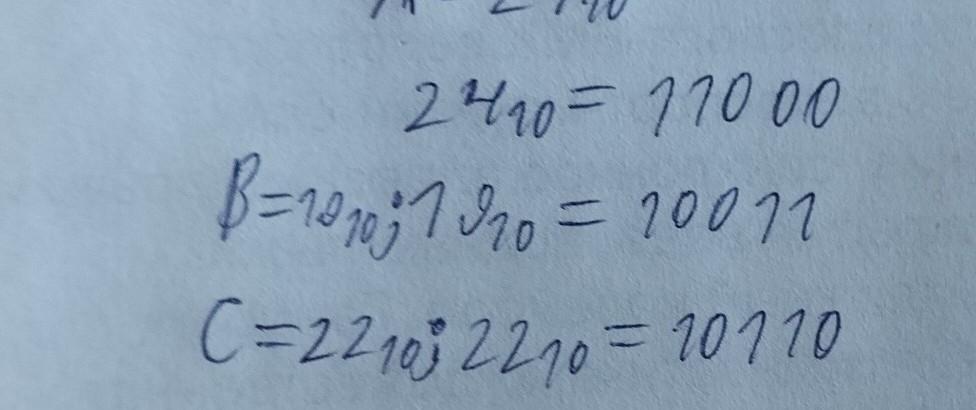 24₁₀ = 11000
B=19₁₀; 19₁₀ = 10011
C=22₁₀; 22₁₀ = 10110